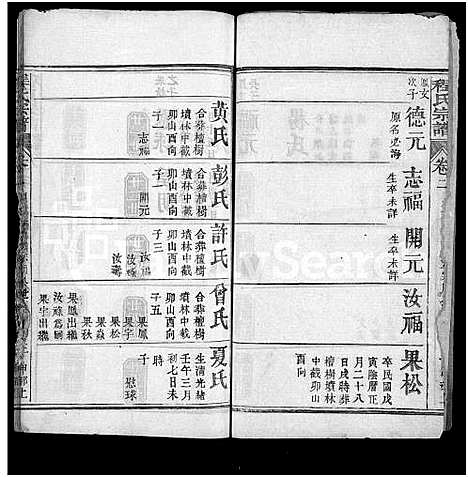 程氏宗譜
卷三
次子
德元
原名必海
志福
生卒未詳
開元
生卒未詳
汝福
果松
卒民國戊
寅陰曆正
月二十八
日戌時葬
檀樹墳林
中截卯山
酉向
黃氏
合葬檀樹
墳林中截
卯山酉向
子一
志福
彭氏
合葬檀樹
墳林中截
卯山酉向
子一
開元
許氏
合葬檀樹
墳林中截
卯山酉向
子三
汝福
曾氏
合葬檀樹
墳林中截
卯山酉向
子五
果鳳
果松
果宇
果焱
果秋
果鳳出繼
汝祿爲嗣
果宇出繼
夏氏
生清光緒
壬午三月
初七日未
時
子
慰球